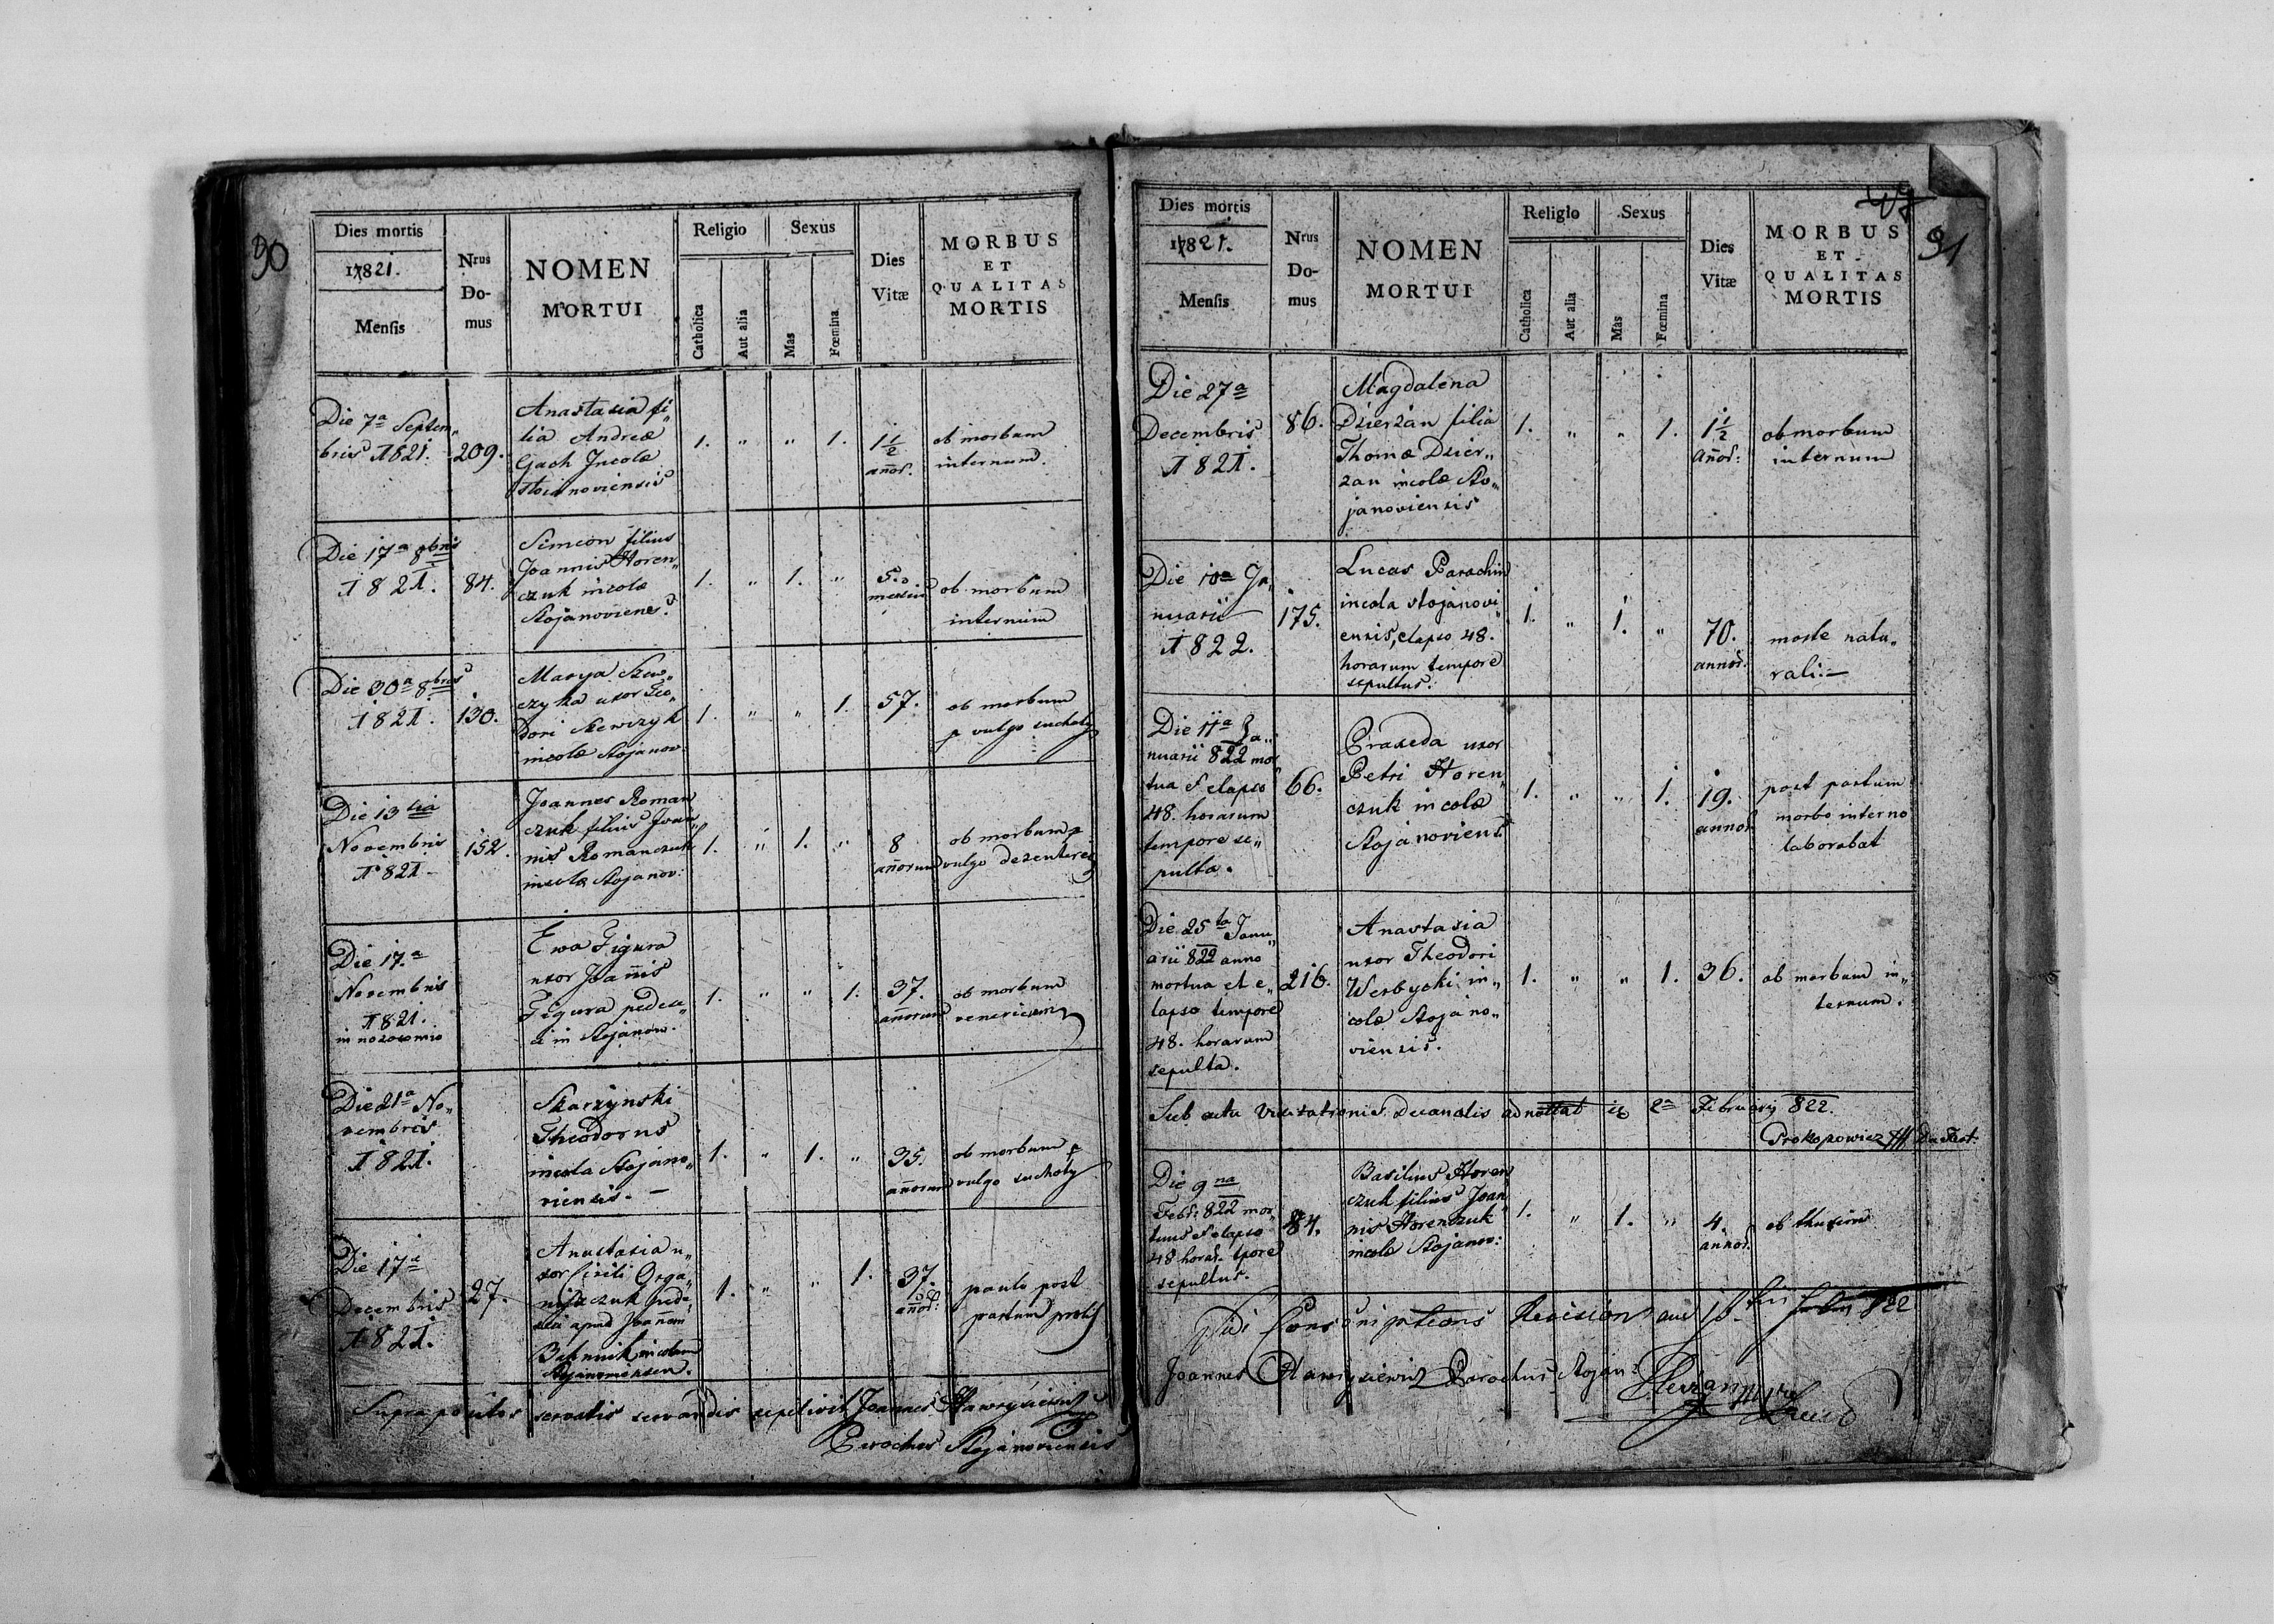 90
Dies mortis
17821.
Mensis
Nrus
Do-
mus
NOMEN
MORTUI
Religio
Catholica
Aut alia
Sexus
Mas
Fœmina
Dies
Vitæ
MORBUS
ET
QUALITAS
MORTIS
Die 7a Septem„
bris 1821.
209.
Anastasia fi„
lia Andreæ
Gach Incolæ
Stoianoviensis
1. „ „ 1.
1½
añor.
ob morbum
internum.
Die 17a 8bris
1821.
84.
Simeon filius
Joannis Horen„
czuk incolæ
Stojanoviens.
1. „ 1. „
5.
mensiu
ob morbum
internum
Die 30a 8bris
1821.
130.
Marya Szew„
czyka uxor Teo„
dori Szewczyk
incolæ Stojanov.
1. „ „ 1.
57.
ob morbum
p vulgo suchoty
Die 13tia
Novembris
1821.
152.
Joannes Roman
czuk filius Joan„
nis Romanczuk
incolæ Stojanov:
1. „ 1. „
8
añorum
ob morbum p
vulgo dezenterej
Die 17.a
Novembris
1821.
in nozocomio
Ewa Figura
uxor Joañis
Figura pedeu„
ci in Stojanow.
1. „ „ 1.
37.
añorum
ob morbum
venericum
Die 21a No„
vembris
1821.
Skarzynski
Theodorus
incola Stojano„
viensis. —
1. „ 1. „
35.
añorum
ob morbum p
vulgo suchoty
Die 17a
Decembris
1821.
27.
Anastasia u„
xor Cirili Orga„
niszczuk
apud Joañem
incolam
Stojanoviensem.
1. „ „ 1.
37.
añor:
paulo post
partum prolis
Supra positos servatis servandis sepelivit Joannes Hawrysiewicz
Parochus Stojanoviensis
91
Dies mortis
17821.
Mensis
Nrus
Do-
mus
NOMEN
MORTUI
Religio
Catholica
Aut alia
Sexus
Mas
Fœmina
Dies
Vitæ
MORBUS
ET
QUALITAS
MORTIS
Die 27a
Decembris
1821.
86.
Magdalena
Dzierzan filia
Thomæ Dzier„
zan incolæ Sto„
janoviensis
1. „ „ 1.
1½
añor:
ob morbum
internum
Die 10a Ja„
nuarii
1822.
175.
Lucas Parachin
incola Stojanovi„
ensis, elapso 48.
horarum tempore
sepultus.
1. „ 1. „
70.
annor.
morte natu„
rali.—
Die 11a Ja„
nuarii 822 mor
tua et elapso
48. horarum
tempore se„
pulta.
66.
Praxeda uxor
Petri Horen„
czuk incolæ
Stojanoviens.
1. „ „ 1.
19.
annor.
post partum
morbo interno
laborabat
Die 25ta Janu„
arii 822 anno
mortua et e„
lapso tempore
48. horarum
sepulta.
216.
Anastasia
uxor Theodori
Werbycki in„
colæ Stojano„
viensis.
1. „ „ 1.
36.
ob morbum in„
ternum.
Sub actu Visitationis Decanalis adnottat 2a Februarij 822.
Prokopowicz
Die 9na
Febr: 822 mor„
tuus et elapso
48 horar. tpore
sepultus.
84.
Basilius Horen
czuk filius Joan„
nis Horenczuk
incolæ Stojanov:
1. „ 1. „
4.
annor.
ob thusim
822
Joannes Hawrysiewicz Parochus Stojan: